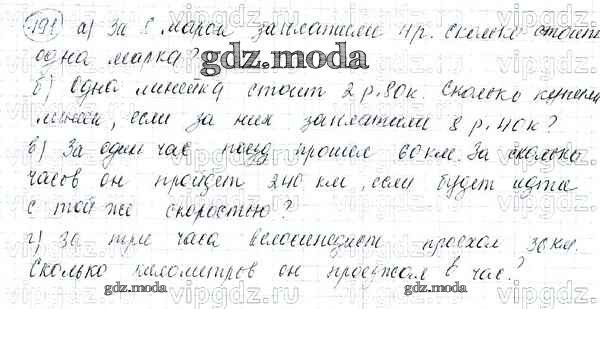 191 а) За 8 марок заплатили 4 р. Сколько стоит
одна марка?
gdz.moda
б) Одна линейка стоит 2 р. 80 к. Сколько купили
линеек, если за них заплатили 8 р. 40 к?
в) За один час поезд прошел 60 км. За сколько
часов он пройдет 240 км, если будет идти
с той же скоростью?
г) За три часа велосипедист проехал 36 км.
Сколько километров он проезжал в час?
gdz.moda gdz.moda
vipgdz.ru